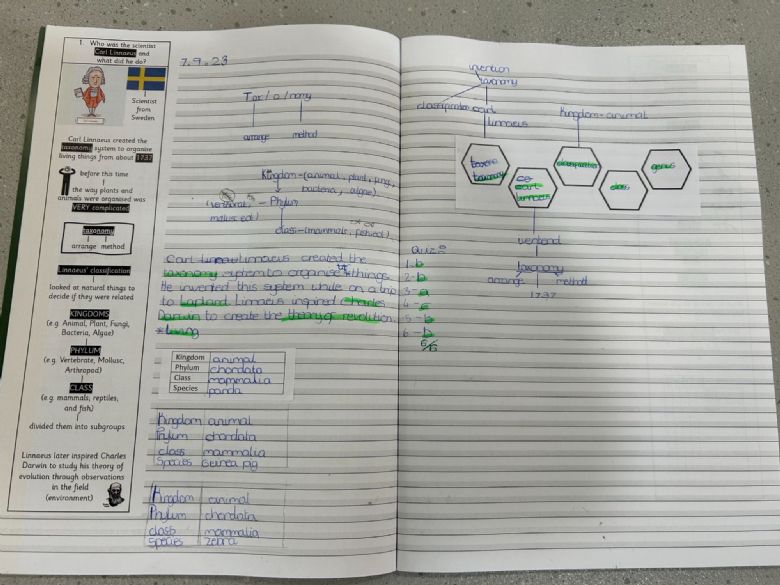 1. Who was the scientist
Carl Linnaeus and
what did he do?
Scientist
from
Sweden.
Carl Linnaeus created the
taxonomy system to organise
living things from about 1737
before this time
the way plants and
animals were organised was
VERY complicated
taxonomy
arrange method
Linnaeus' classification
looked at natural things to
decide if they were related
KINGDOMS
(e.g. Animal, Plant, Fungi,
Bacteria, Algae)
PHYLUM
(e.g. Vertebrate, Mollusc,
Arthropod)
CLASS
(e.g. mammals, reptiles,
and fish)
divided them into subgroups
Linnaeus later inspired Charles
Darwin to study his theory of
evolution through observations
in the field
(environment)
7.9.23
Tax/o/nomy
arrange method
Kingdom-(animal, plant, fungi,
bacteria, algae).
- Phylum
class-(mammals,
Carl Linnaeus created the
taxonomy system to organise * things.
He invented this system while on a trip
to Lapland. Linnaeus inspired Charles
Darwin to create the theory of revolution.
*living
Kingdom animal
Phylum chordata
Class mammalia
Species panda
Kingdom animal
Phylum chordata
class mammalia
Species Guinea pig
Kingdom animal
Phylum chordata
class mammalia
Species zebra
invention
taxonomy
classification carl
linnaeus
Kingdom-animal
taxonomy
carl
linnaeus
classification
class
genus
taxonomy
arrange method
1737
Quiz:
1-b
2-b
3-a
4-c
5-b
6-b
6/6